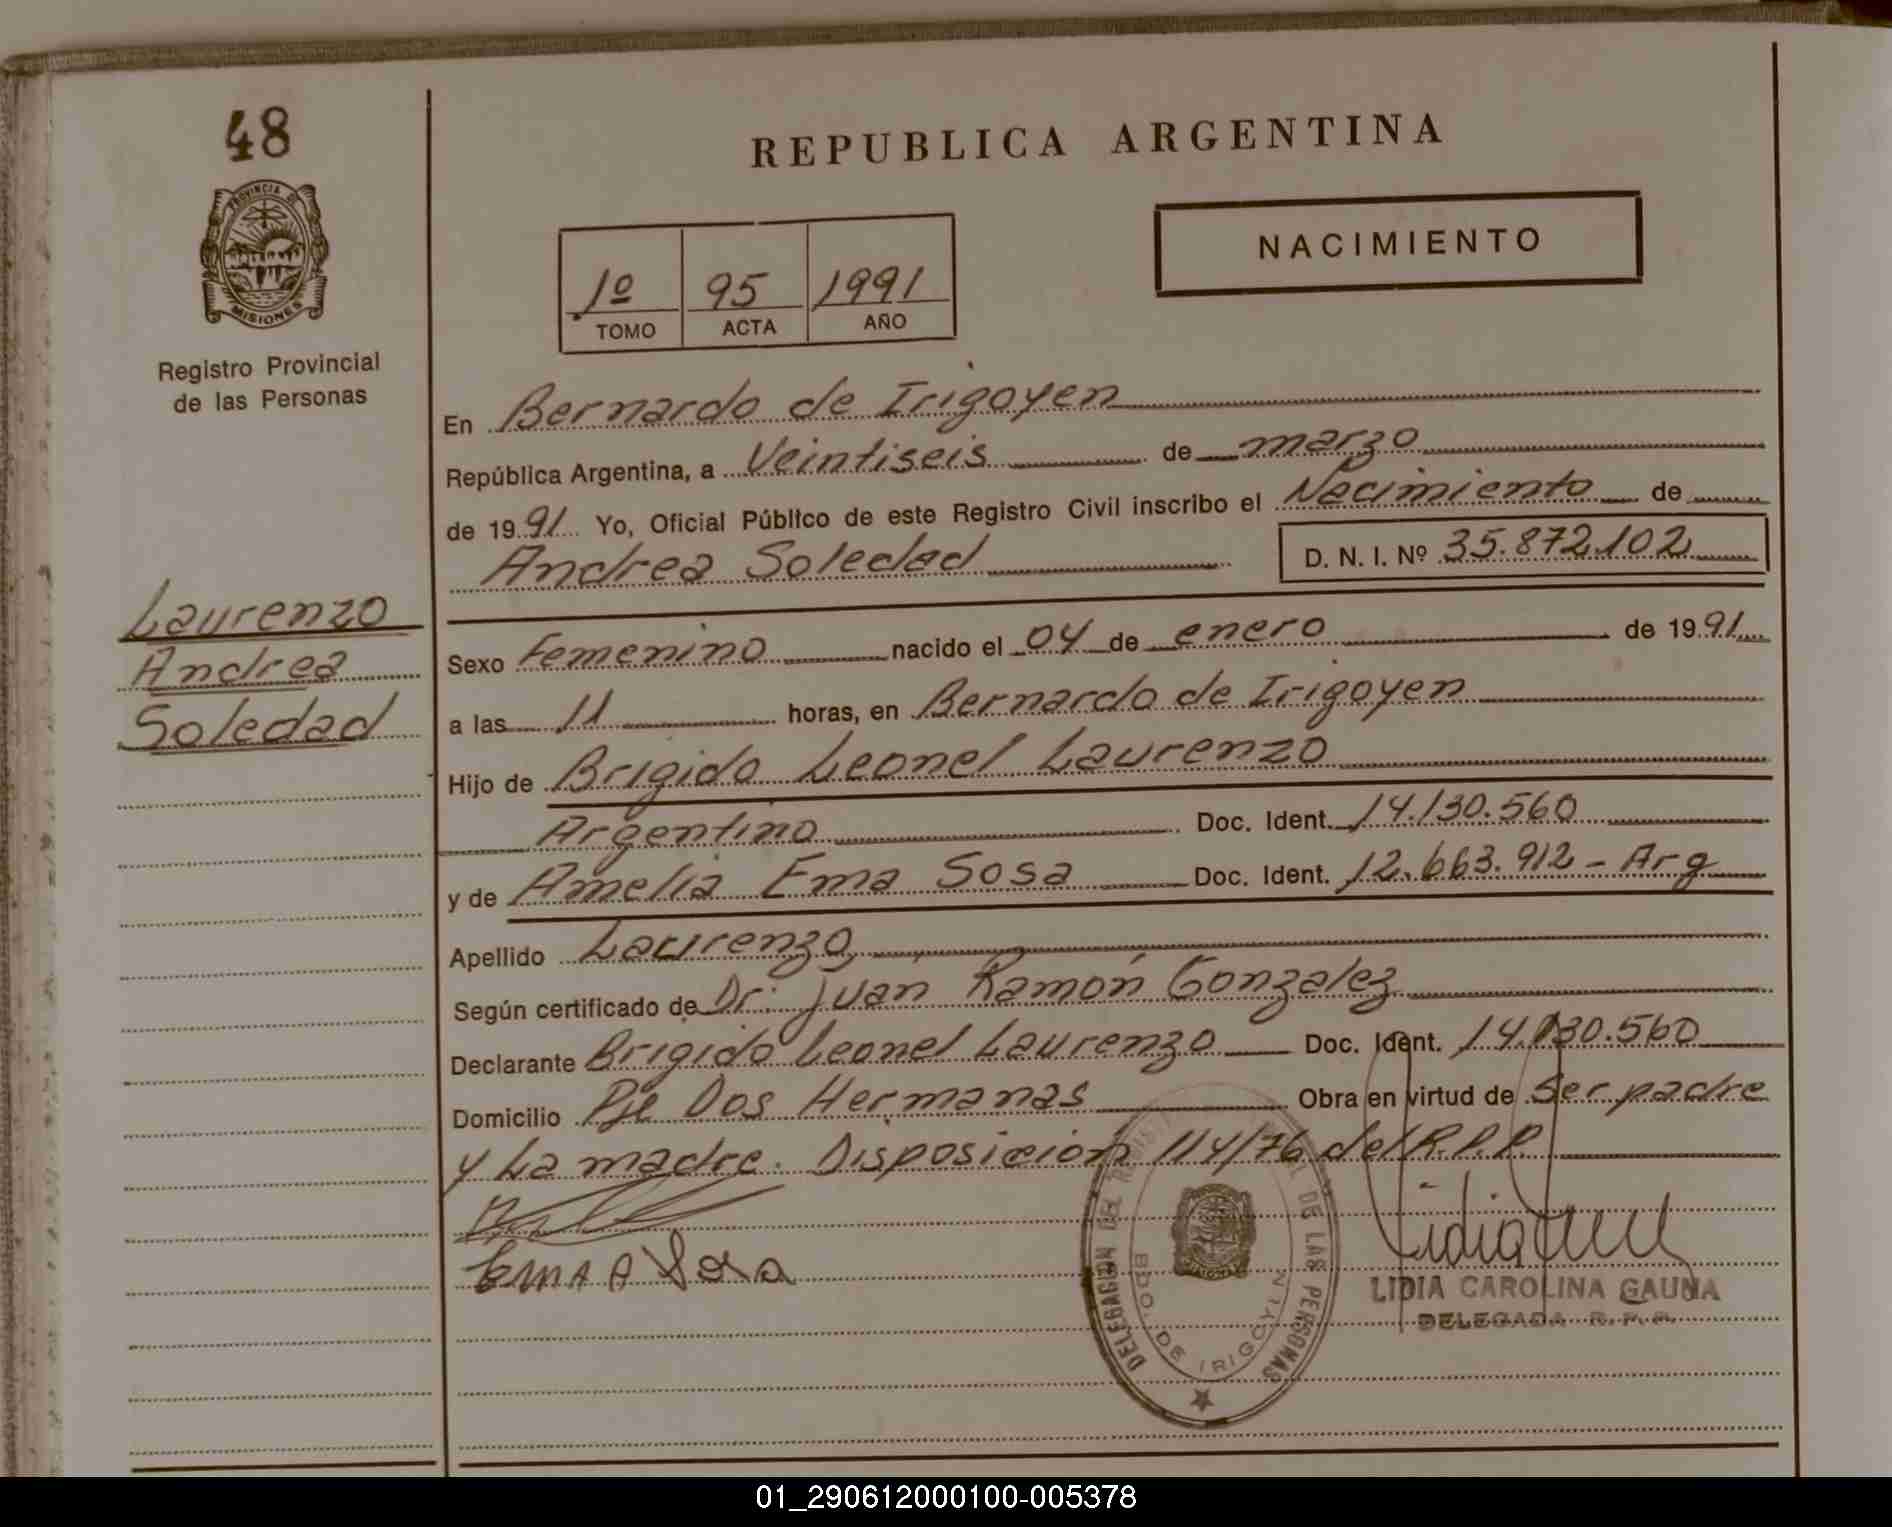 48
PROVINCIA DE
MISIONES
Registro Provincial
de las Personas
Laurenzo
Andrea
Soledad
REPUBLICA ARGENTINA
NACIMIENTO
1º 95 1991
TOMO ACTA AÑO
En Bernardo de Irigoyen
República Argentina, a Veintiseis de marzo
de 1991 Yo, Oficial Público de este Registro Civil inscribo el Nacimiento de
Andrea Soledad D. N. I. Nº 35.872.102
Sexo Femenino nacido el 04 de enero de 1991
a las 11 horas, en Bernardo de Irigoyen
Hijo de Brigido Leonel Laurenzo
Argentino Doc. Ident. 14.130.560
y de Amelia Ema Sosa Doc. Ident. 12.663.912 - Arg
Apellido Laurenzo
Según certificado de Dr. Juan Ramón Gonzalez
Declarante Brigido Leonel Laurenzo Doc. Ident. 14.130.560
Domicilio Pje Dos Hermanas Obra en virtud de Ser padre
y La madre. Disposicion 114/76 del R.P.P.
Ema A Sosa
DELEGACION DEL DE LAS PERSONAS
BDO. DE IRIGOYEN
LIDIA CAROLINA GAUNA
DELEGADA R. P. P.
01_290612000100-005378